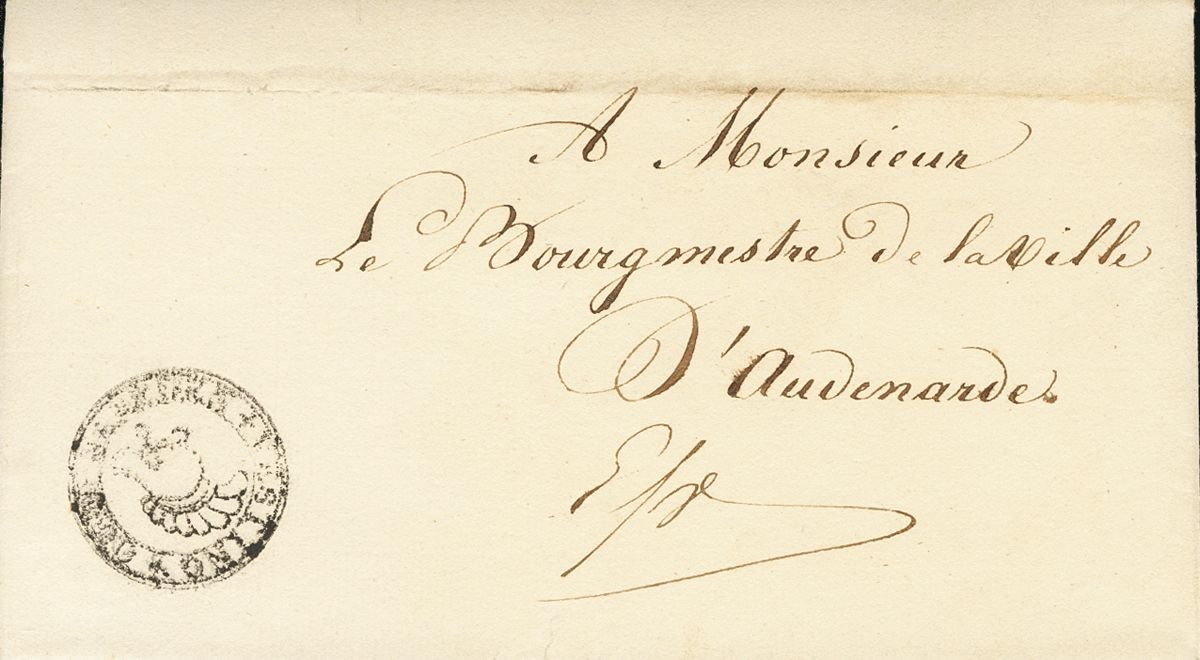 A Monsieur
Le Bourgmestre de la Ville
D'Audenarde.